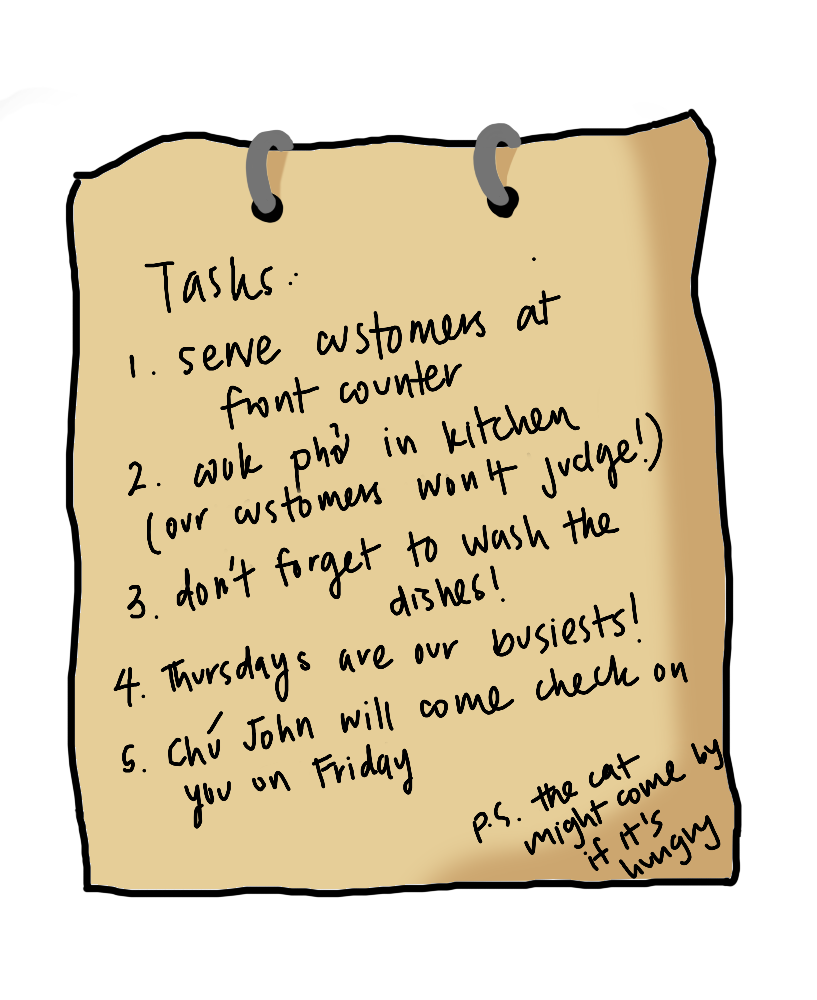 Tasks:
1. serve customers at
front counter
2. cook phở in kitchen
(our customers won't judge!)
3. don't forget to wash the
dishes!
4. Thursdays are our busiests!
5. Chú John will come check on
you on Friday
p.s. the cat
might come by
if it's
hungry